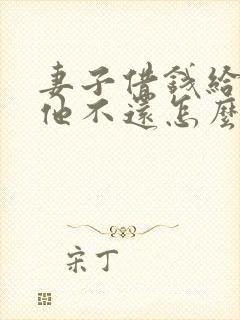 妻子借錢給
他不還怎麼
宋丁